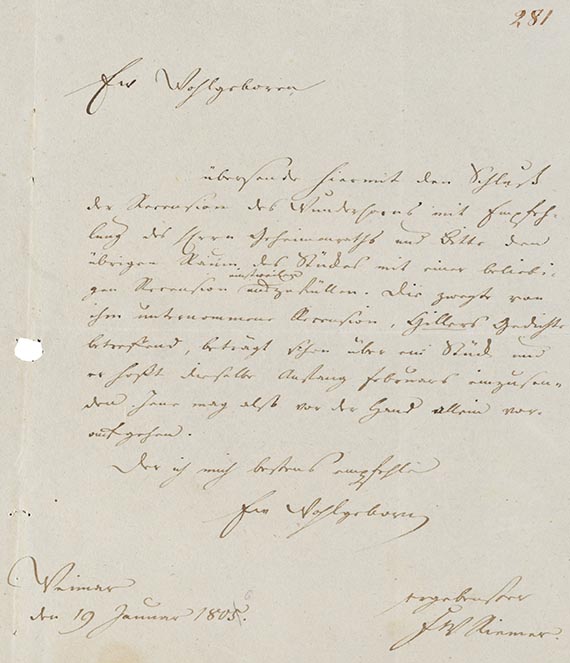 281
Ew Wohlgeboren
übersende hiermit den Schluß
der Recension des Wunderhorns mit Empfeh-
lung des Herrn Geheimenraths und Bitte den
übrigen Raum des Stückes mit einer beliebi-
einstweilen
gen Recension auszufüllen. Die zweyte von
ihm unternommene Recension, Hillers Gedichte
betreffend, beträgt schon über ein Stück und
er hofft dieselbe Anfang Februars einzusen-
den. Jene mag also vor der Hand allein vor-
aufgehen.
Der ich mich bestens empfehle
Ew Wohlgeborn
Weimar
6
den 19 Januar 1805.
ergebenster
FW Riemer.